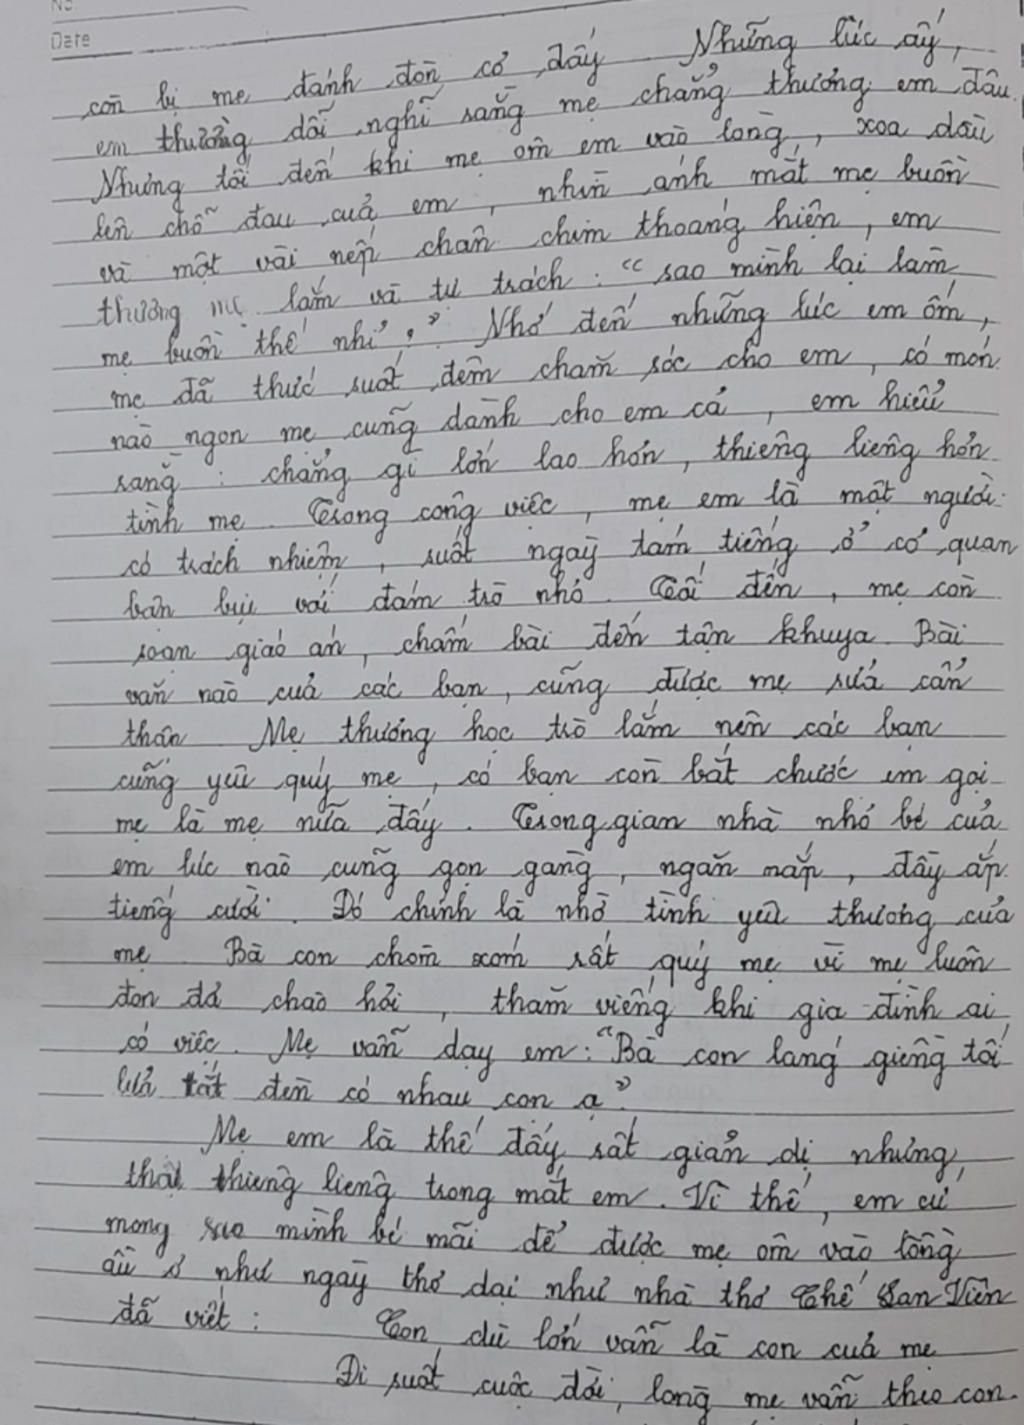 No
Date
còn bị mẹ đánh đòn cơ đấy. Những lúc ấy,
em thường dỗi nghĩ rằng mẹ chẳng thương em đâu.
Nhưng tối đến khi mẹ ôm em vào lòng, xoa dầu
lên chỗ đau của em, nhìn ánh mắt mẹ buồn
và một vài nếp chân chim thoáng hiện, em
thương mẹ lắm và tự trách: "sao mình lại làm
mẹ buồn thế nhỉ?" Nhớ đến những lúc em ốm,
mẹ đã thức suốt đêm chăm sóc cho em, có món
nào ngon mẹ cũng dành cho em cả, em hiểu
rằng: chẳng gì lớn lao hơn, thiêng liêng hơn
tình mẹ. Trong công việc, mẹ em là một người
có trách nhiệm, suốt ngày tám tiếng ở cơ quan
bận bịu với đám trò nhỏ. Tối đến, mẹ còn
soạn giáo án, chấm bài đến tận khuya. Bài
văn nào của các bạn, cũng được mẹ sửa cẩn
thận. Mẹ thương học trò lắm nên các bạn
cũng yêu quý mẹ, có bạn còn bắt chước em gọi
mẹ là mẹ nữa đấy. Trong gian nhà nhỏ bé của
em lúc nào cũng gọn gàng, ngăn nắp, đầy ắp
tiếng cười. Đó chính là nhờ tình yêu thương của
mẹ. Bà con chòm xóm rất quý mẹ vì mẹ luôn
đon đả chào hỏi, thăm viếng khi gia đình ai
có việc. Mẹ vẫn dạy em: "Bà con láng giềng tối
lửa tắt đèn có nhau con ạ".
Mẹ em là thế đấy, rất giản dị nhưng,
thật thiêng liêng trong mắt em. Vì thế, em cứ
mong sao mình bé mãi để được mẹ ôm vào lòng
ầu ơ như ngày thơ dại như nhà thơ Chế Lan Viên
đã viết: Con dù lớn vẫn là con của mẹ
Đi suốt cuộc đời, lòng mẹ vẫn theo con.